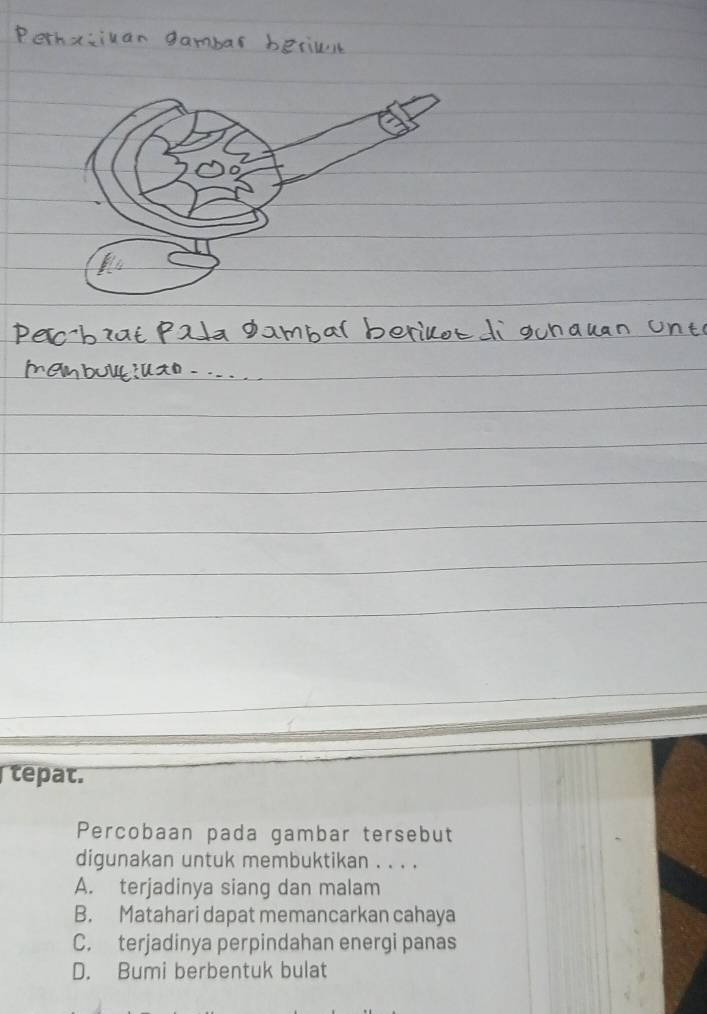 Perhatikan gambar berikut
Percobaat Pada gambar berikut di gunakan unt
membuktikan .....
tepat.
Percobaan pada gambar tersebut
digunakan untuk membuktikan . . . .
A. terjadinya siang dan malam
B. Matahari dapat memancarkan cahaya
C. terjadinya perpindahan energi panas
D. Bumi berbentuk bulat